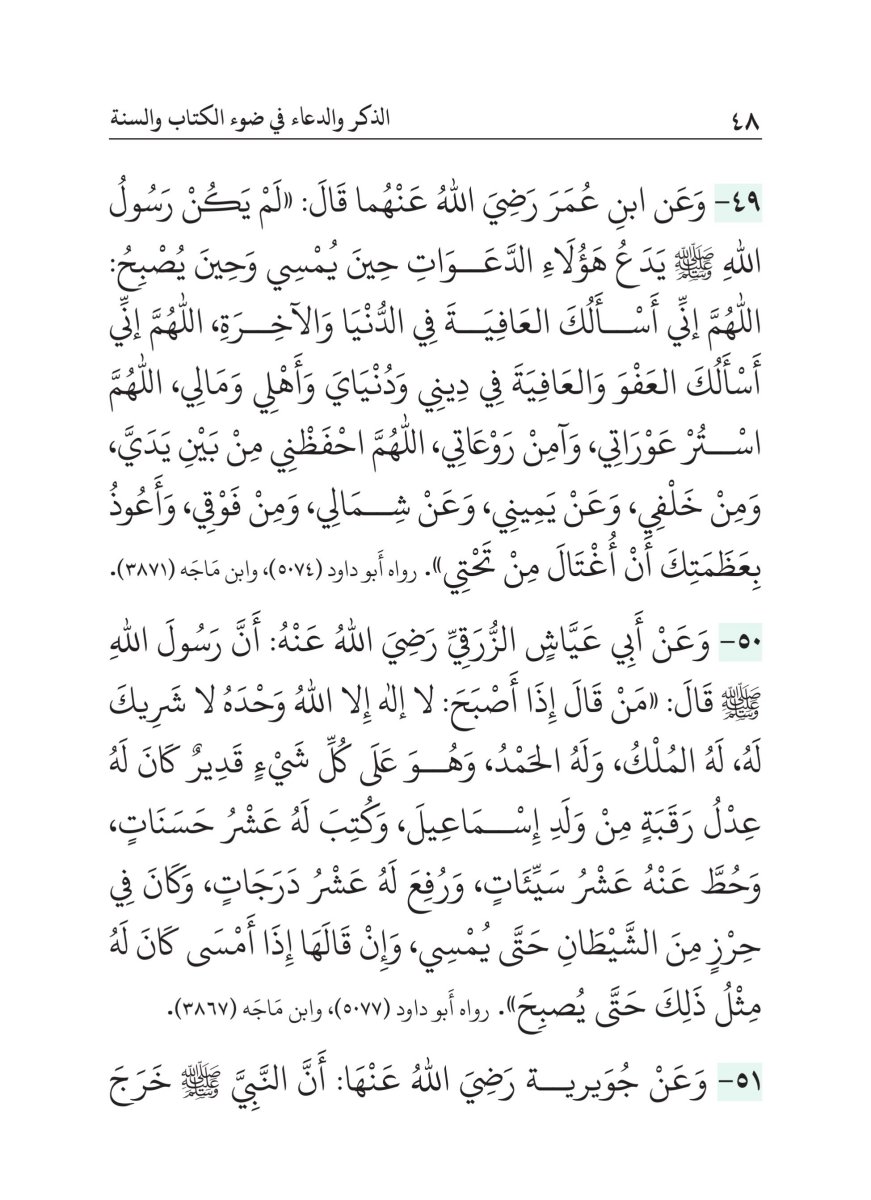 ٤٨ الذكر والدعاء في ضوء الكتاب والسنة
٤٩- وَعَن ابنِ عُمَرَ رَضِيَ اللهُ عَنْهُما قَالَ: «لَمْ يَكُنْ رَسُولُ
اللهِ ﷺ يَدَعُ هَؤُلَاءِ الدَّعَـــوَاتِ حِينَ يُمْسِي وَحِينَ يُصْبِحُ:
اللَّهُمَّ إنِّي أَسْـــأَلُكَ العَافِيَـــةَ فِي الدُّنْيَا وَالآخِـــرَةِ، اللَّهُمَّ إنِّي
أَسْأَلُكَ العَفْوَ وَالعَافِيَةَ فِي دِينِي وَدُنْيَايَ وَأَهْلِي وَمَالِي، اللَّهُمَّ
اسْـــتُرْ عَوْرَاتِي، وَآمِنْ رَوْعَاتِي، اللَّهُمَّ احْفَظْنِي مِنْ بَيْنِ يَدَيَّ،
وَمِنْ خَلْفِي، وَعَنْ يَمِينِي، وَعَنْ شِـــمَالِي، وَمِنْ فَوْقِي، وَأَعُوذُ
بِعَظَمَتِكَ أَنْ أُغْتَالَ مِنْ تَحْتِي». رواه أَبو داود (٥٠٧٤)، وابن مَاجَه (٣٨٧١).
٥٠- وَعَنْ أَبِي عَيَّاشٍ الزُّرَقِيِّ رَضِيَ اللهُ عَنْهُ: أَنَّ رَسُولَ اللهِ
ﷺ قَالَ: «مَنْ قَالَ إِذَا أَصْبَحَ: لا إلٰه إلا اللهُ وَحْدَهُ لا شَرِيكَ
لَهُ، لَهُ المُلْكُ، وَلَهُ الحَمْدُ، وَهُـــوَ عَلَى كُلِّ شَيْءٍ قَدِيرٌ كَانَ لَهُ
عِدْلُ رَقَبَةٍ مِنْ وَلَدِ إِسْـــمَاعِيلَ، وَكُتِبَ لَهُ عَشْرُ حَسَنَاتٍ،
وَحُطَّ عَنْهُ عَشْرُ سَيِّئَاتٍ، وَرُفِعَ لَهُ عَشْرُ دَرَجَاتٍ، وَكَانَ فِي
حِرْزٍ مِنَ الشَّيْطَانِ حَتَّى يُمْسِي، وَإِنْ قَالَهَا إِذَا أَمْسَى كَانَ لَهُ
مِثْلُ ذَلِكَ حَتَّى يُصبِحَ». رواه أَبو داود (٥٠٧٧)، وابن مَاجَه (٣٨٦٧).
٥١- وَعَنْ جُوَيرِيـــة رَضِيَ اللهُ عَنْهَا: أَنَّ النَّبِيَّ ﷺ خَرَجَ